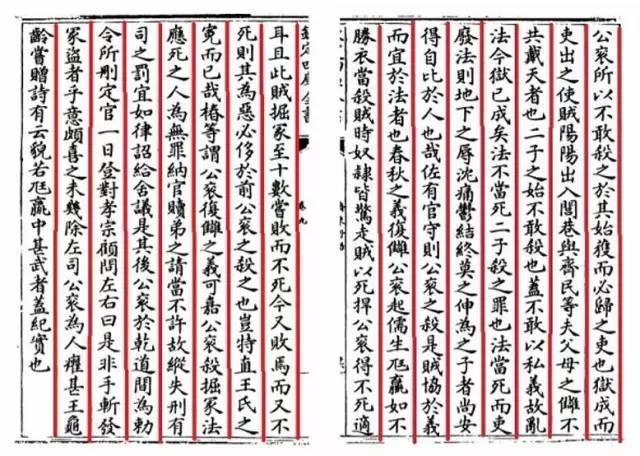 公袞所以不敢殺之於其始獲而必歸之吏也獄成而
吏出之使賊陽陽出入閭巷與齊民等夫父母之讎不
共戴天者也二子之始不敢殺也蓋不敢以私義故亂
法今獄已成矣法不當死二子殺之罪也法當死而吏
廢法則地下之辱沈痛鬱結終莫之伸為之子者尚安
得自比於人也哉佐有官守則公袞之殺是賊協於義
而宜於法者也春秋之義復讎公袞起儒生尫羸如不
勝衣當殺賊時奴隸皆驚走賊以死捍公袞得不死適
欽定四庫全書
卷九
耳且此賊掘冢至十數當敗而不死今又敗焉而又不
死則其為惡必侈於前公袞之殺之也豈特直王氏之
寃而已哉椿等謂公袞復讎之義可嘉公袞殺掘冢法
應死之人為無罪納官贖弟之請當不許故縱失刑有
司之罰宜如律詔給舍議是其後公袞於乾道間為勅
令所刪定官一日登對孝宗顧問左右曰是非手斬發
冢盜者乎意頗喜之未幾除左司公袞為人癯甚王龜
齡嘗贈詩有云貌若尫羸中甚武者蓋紀實也